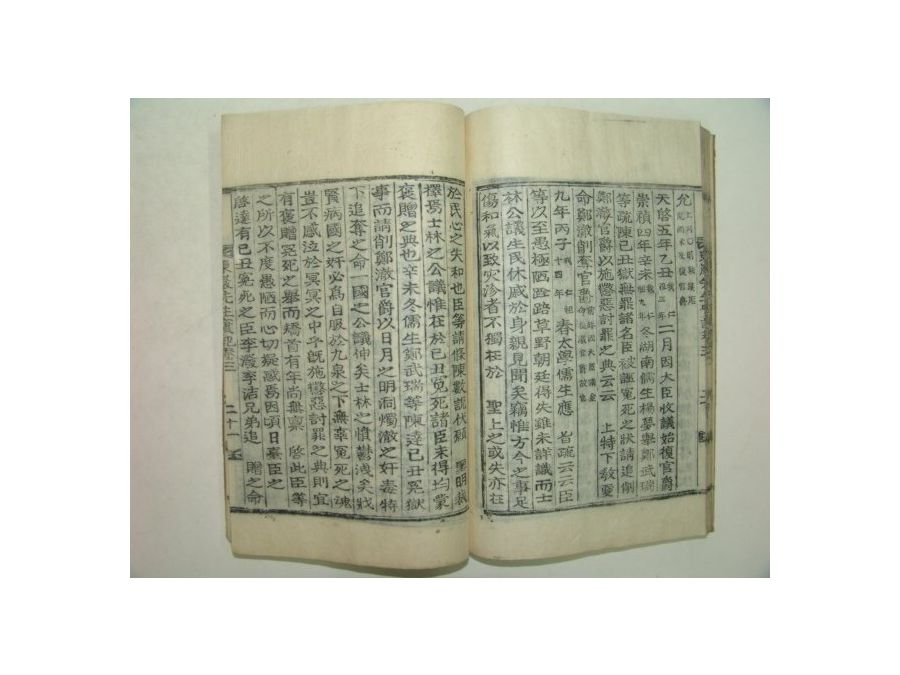 允
天啓五年乙丑 二月因大臣收議始復官爵
崇禎四年辛未 冬湖南儒生楊夢擧鄭武瑞
等疏陳己丑獄無罪諸名臣被誣冤死之狀請追削
鄭澈官爵以施懲惡討罪之典云云 上特下敎更
命鄭澈削奪官爵
九年丙子 春太學儒生應 旨疏云云臣
等以至愚極陋跧路草野朝廷得失雖未詳識而士
林公議生民休戚於身親見聞矣竊惟方今之事足
傷和氣以致灾沴者不獨在於 聖上之或失亦在
於民心之失和也臣等請條陳數說伏願 聖明裁
擇焉士林之公議惟在於己丑冤死諸臣未得均蒙
褒贈之典也辛未冬儒生鄭武瑞等陳達己丑冤獄
事而請削鄭澈官爵以日月之明洞燭澈之奸毒特
下追奪之命一國之公議伸矣士林之憤鬱洩矣戕
賢病國之奸必爲自服於九泉之下無辜冤死之魂
豈不感泣於冥冥之中乎旣施懲惡討罪之典則宜
有褒贈冤死之擧而矯首有年尚無稟 啓此臣等
之所以不度愚陋而心切疑惑焉因頃日臺臣之
啓達有己丑冤死之臣李潑李洁兄弟追 贈之命
先生實記卷三 二十一